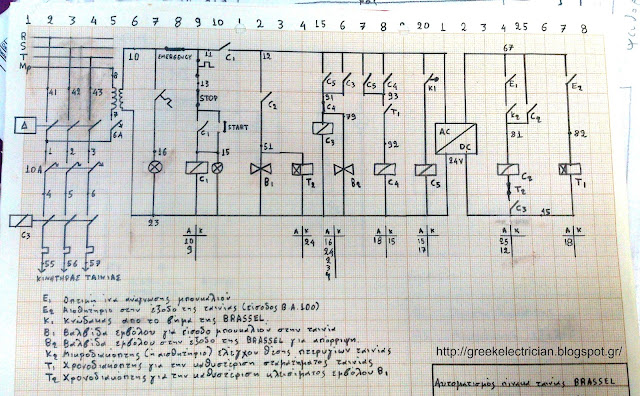 1 2 3 4 5 6 7 8 9 10 1 2 3 4 15 6 7 8 9 20 1 2 3 4 25 6 7 8
R
S
T
Mp
8
6
10
EMERGENCY
11
C1
12
67
41
42
43
7
13
STOP
C2
C5
C3
C5
C4
K1
E1
E2
91
93
C4
T1
K2
C2
Δ
6A
C1
START
79
AC
DC
81
82
1 2 3
16
15
51
C3
92
24V
10A
C1
B1
T2
B2
C4
C5
C2
T1
4 5 6
T2
C3
23
45
C3
A K
20
9
A K
24
A K
16
24
2
3
4
A K
18 15
A K
15
17
A K
25
12
A K
18
55 56 57
ΚΙΝΗΤΗΡΑΣ ΤΑΙΝΙΑΣ
E1 Οπτική ίνα ανίχνωσης μπουκαλιού
E2 Αισθητήριο στην έξοδο της ταινίας (είσοδος B.A.100)
K1 Κνώδακας από το βήμα της BRASSEL
B1 Βαλβίδα εμβόλου για είσοδο μπουκαλιού στην ταινία
B2 Βαλβίδα εμβόλου στην έξοδο της BRASSEL για απόρριψη
K2 Μικροδιακόπτης (ή αισθητήριο) ελέγχου θέσης πτερυγίων ταινίας
T1 Χρονοδιακόπτης για την καθυστέριση σταματήματος ταινίας
T2 Χρονοδιακόπτης για την καθυστέριση κλεισίματος εμβόλου B1
http://greekelectrician.blogspot.gr/
Αυτοματισμός πίνακα ταινίας BRASSEL